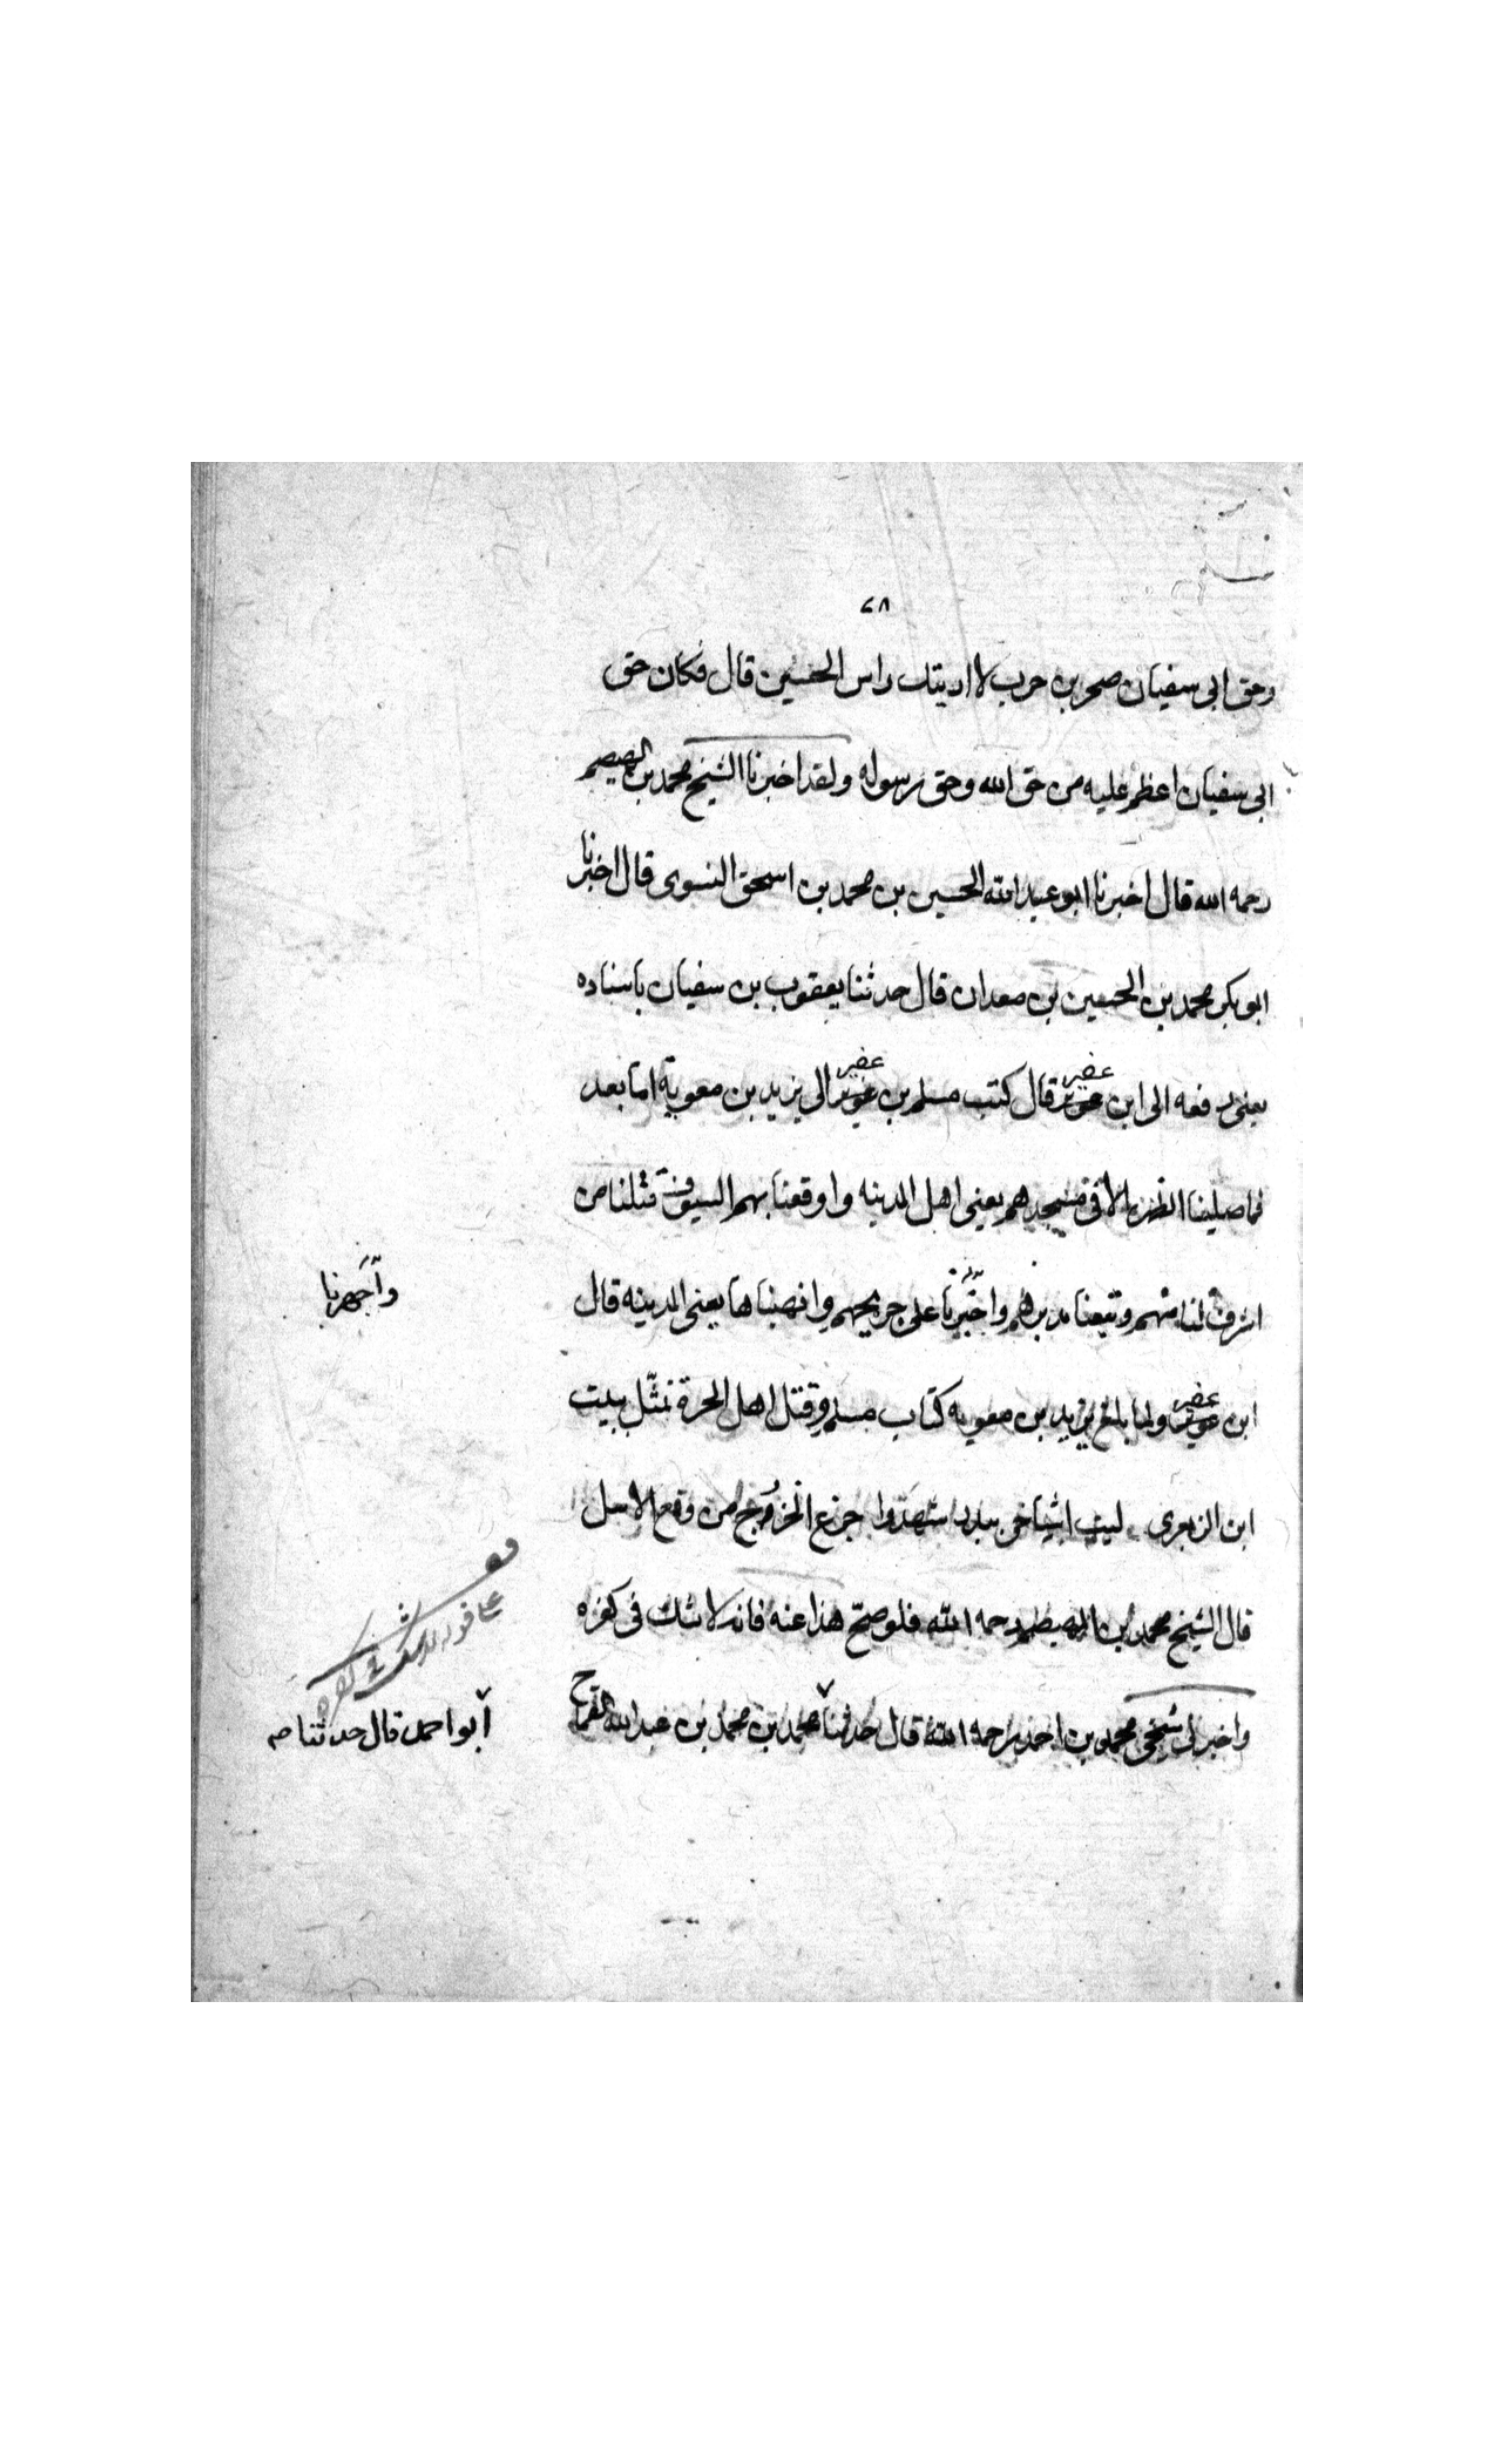 ٤٨
وحق ابى سفيان صخر بن حرب لا اريتك راس الحسين قال فكان حق
ابى سفيان اعظم عليه من حق الله وحق رسوله ولقد اخبرنا الشيخ محمد بن الهيصم
رحمه الله قال اخبرنا ابو عبد الله الحسين بن محمد بن اسحق النسوى قال اخبرنا
ابو بكر محمد بن الحسين بن معدان قال حدثنا يعقوب بن سفيان باسناده
عفير عفير
يعنى يرفعه الى ابن قال كتب مسلم بن الى يزيد بن معوية اما بعد
فما صلينا الظهر الا فى مسجدهم يعنى اهل المدينه واوقعنا بهم السيوف قتلنا من
اشرف لنا منهم وتبعنا مدبرهم على جريحهم وانهبناها يعنى المدينه قال
وأجهزنا
عفير
ابن ولما بلغ يزيد بن معويه كتاب مسلم وقتل اهل الحرة تمثّل ببيت
ابن الزبعرى ليت اشياخى ببدر شهدوا جزع الخزرج من وقع الاسل
قال الشيخ محمد بن الهيصم رحمه الله فلو صحّ هذا عنه فانه لا شك فى كفره
واخبرنى شيخى محمد بن احمد رحمه الله قال حدثنا محمد بن محمد بن عبد الله
أبو احمد قال حدثنا صه